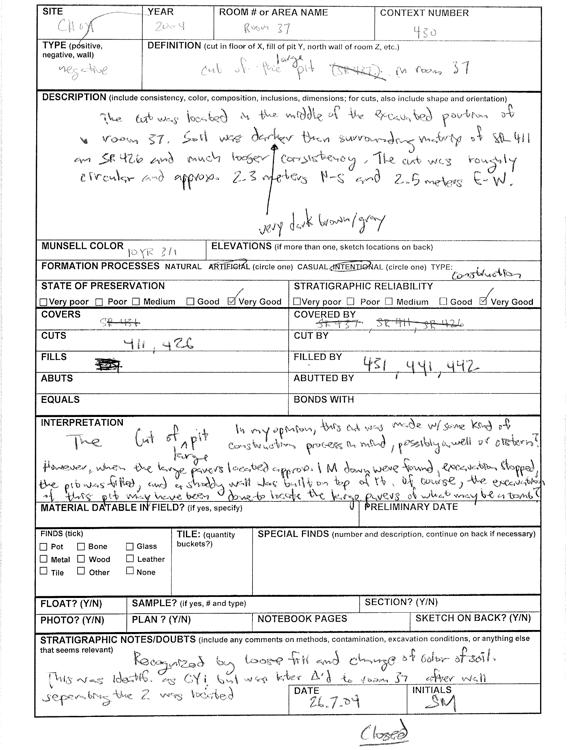 SITE YEAR ROOM # OR AREA NAME CONTEXT NUMBER
CHOY 2004 Room 37 430
TYPE (positive, negative, wall) DEFINITION (cut in floor of X, fill of pit Y, north wall of room Z, etc.)
negative cut of the large pit in room 37
DESCRIPTION (include consistency, color, composition, inclusions, dimensions; for cuts, also include shape and orientation)
The cut was located in the middle of the excavated portion of
room 37. Soil was darker than surrounding matrix of SR 411
an SR 426 and much looser consistency. The cut was roughly
circular and approx. 2.3 meters N-S and 2.5 meters E-W.
very dark brown/gray
MUNSELL COLOR 10YR 3/1 ELEVATIONS (if more than one, sketch locations on back)
FORMATION PROCESSES NATURAL ARTIFICIAL (circle one) CASUAL INTENTIONAL (circle one) TYPE: construction
STATE OF PRESERVATION STRATIGRAPHIC RELIABILITY
Very poor Poor Medium Good Very Good Very poor Poor Medium Good Very Good
COVERS SR 431 COVERED BY SR 437, SR 411, SR 426
CUTS 411, 426 CUT BY
FILLS FILLED BY 431, 441, 442
ABUTS ABUTTED BY
EQUALS BONDS WITH
INTERPRETATION
The Cut of large pit In my opinion, this cut was made w/some kind of
construction process in mind, possibly a well or cistern?
However, when the large pavers located approx. 1 M down were found, excavation stopped,
the pit was filled, and a shoddy wall was built on top of it. Of course, the excavation
of this pit may have been done to locate the large pavers of what may be a tomb?
MATERIAL DATABLE IN FIELD? (if yes, specify) PRELIMINARY DATE
FINDS (tick) TILE: (quantity buckets?) SPECIAL FINDS (number and description, continue on back if necessary)
Pot Bone Glass
Metal Wood Leather
Tile Other None
FLOAT? (Y/N) SAMPLE? (if yes, # and type) SECTION? (Y/N)
PHOTO? (Y/N) PLAN ? (Y/N) NOTEBOOK PAGES SKETCH ON BACK? (Y/N)
STRATIGRAPHIC NOTES/DOUBTS (include any comments on methods, contamination, excavation conditions, or anything else
that seems relevant)
Recognized by loose fill and change of color of soil.
This was identif. as CY; but was later Δ'd to room 37 after wall
seperating the 2 was located
DATE 26.7.04 INITIALS SM
Closed